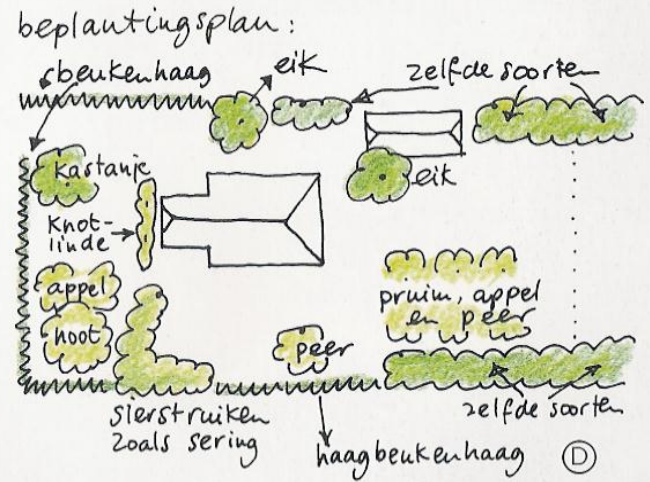 beplantingsplan:
beukenhaag
eik
zelfde soorten
kastanje
eik
Knot-
linde
appel
noot
pruim, appel
en peer
peer
sierstruiken
zoals sering
zelfde soorten
haagbeukenhaag
D